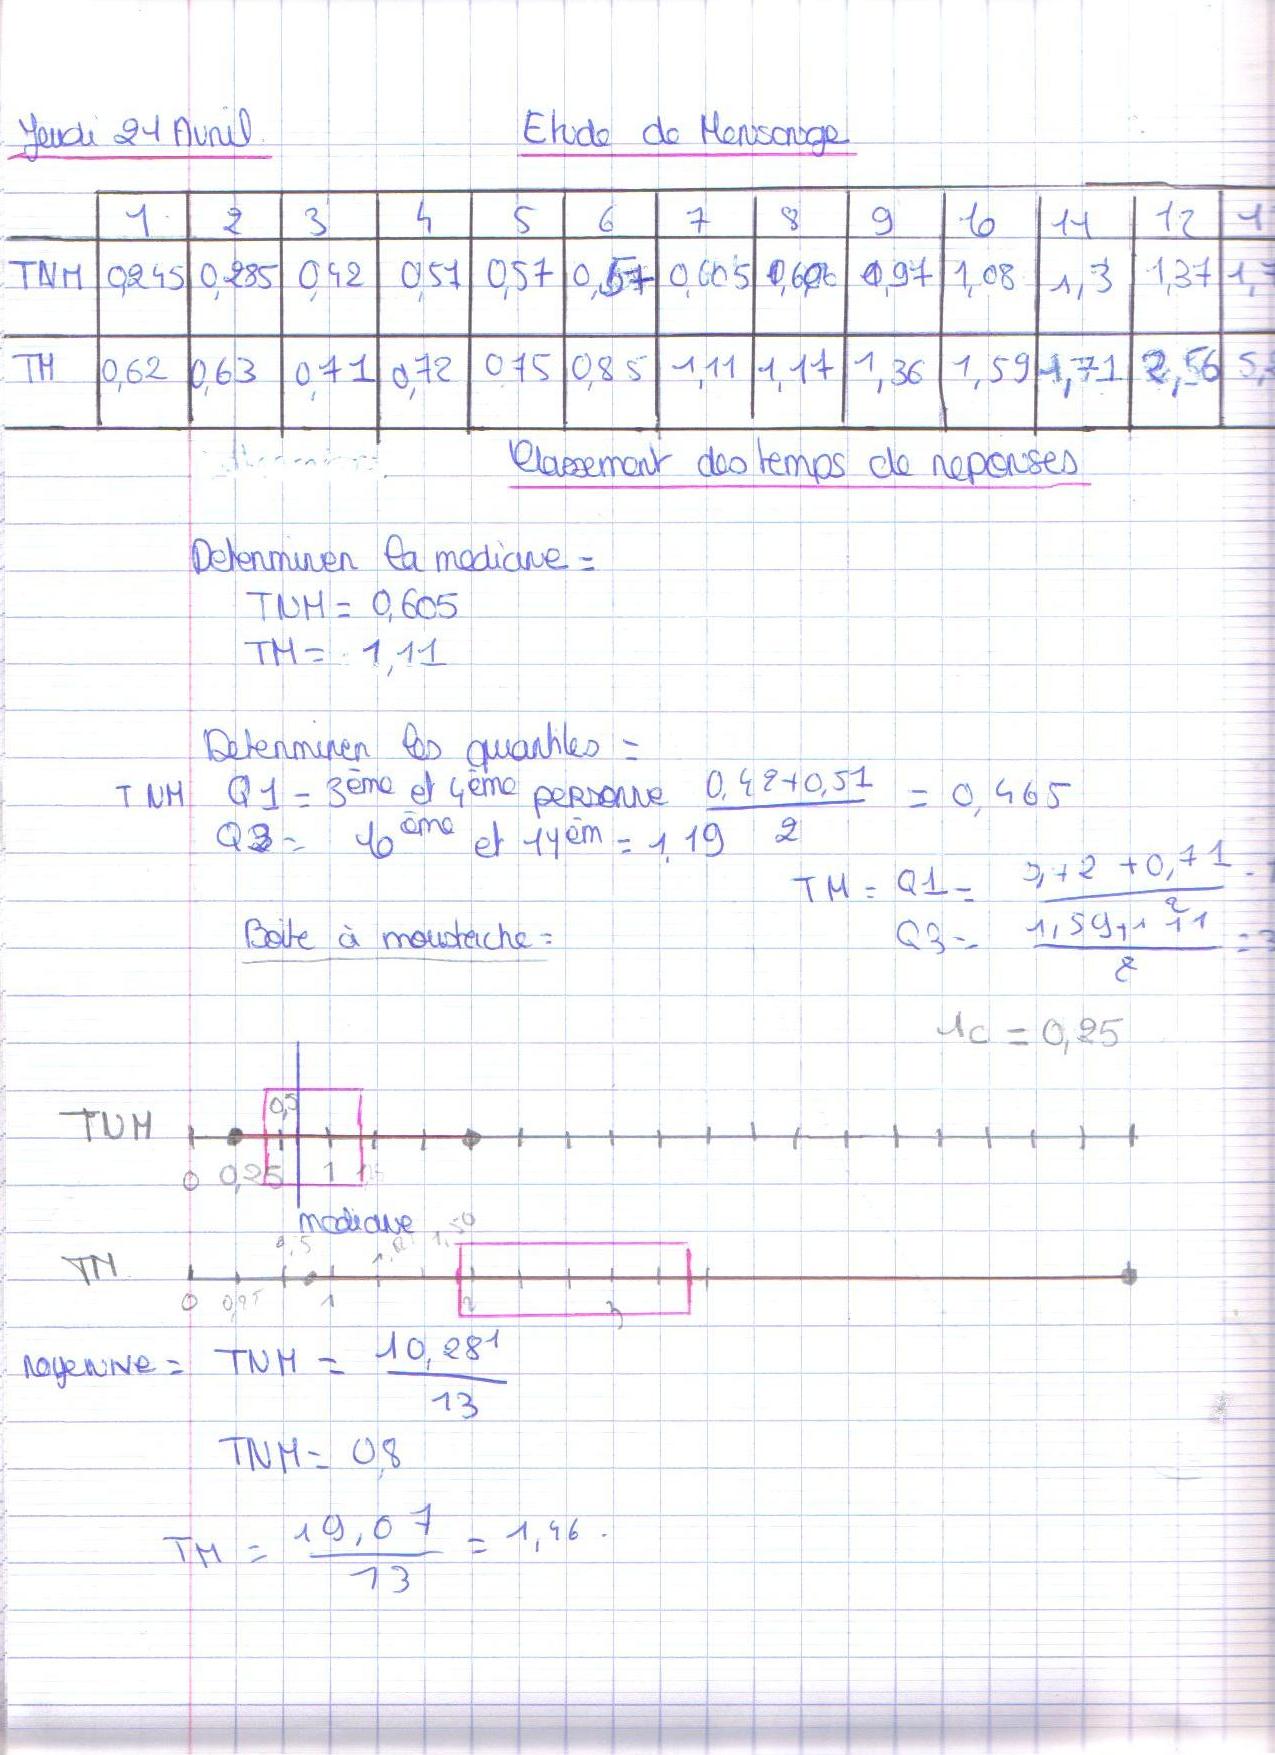 Jeudi 21 Avril Etude de Mensonge
1 2 3 4 5 6 7 8 9 10 11 12
TNM 0,245 0,285 0,42 0,51 0,57 0,57 0,605 0,606 0,97 1,08 1,3 1,37
TM 0,62 0,63 0,71 0,72 0,75 0,85 1,11 1,17 1,36 1,59 1,71 2,56
Classement des temps de reponses
Determiner la mediane =
TNM = 0,605
TM = 1,11
Determiner les quartiles =
TNM Q1 = 3ème et 4ème personne 0,42+0,51 / 2 = 0,465
Q3 = 10ème et 11èm = 1,19
TM = Q1 = 0,72 + 0,71 / 2
Q3 = 1,59+1,71 / 2 =
Boite à moustache =
1c = 0,25
TNM
0,5
0 0,25 1
mediane
0,5 1,50
TM
0 0,25 1 2 3
moyenne = TNM = 10,281 / 13
TNM = 0,8
TM = 19,07 / 13 = 1,46.